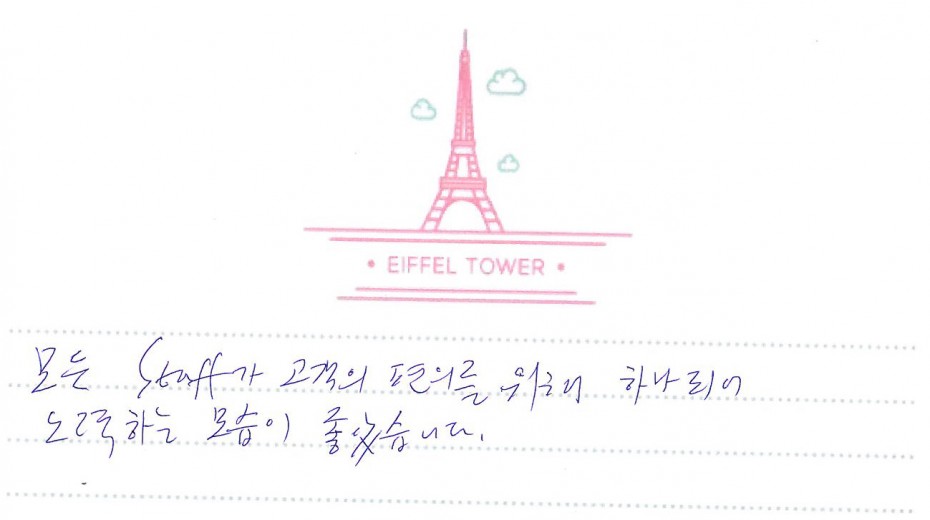 • EIFFEL TOWER •
모든 Staff가 고객의 편의를 위해 하나되어
노력하는 모습이 좋았습니다.